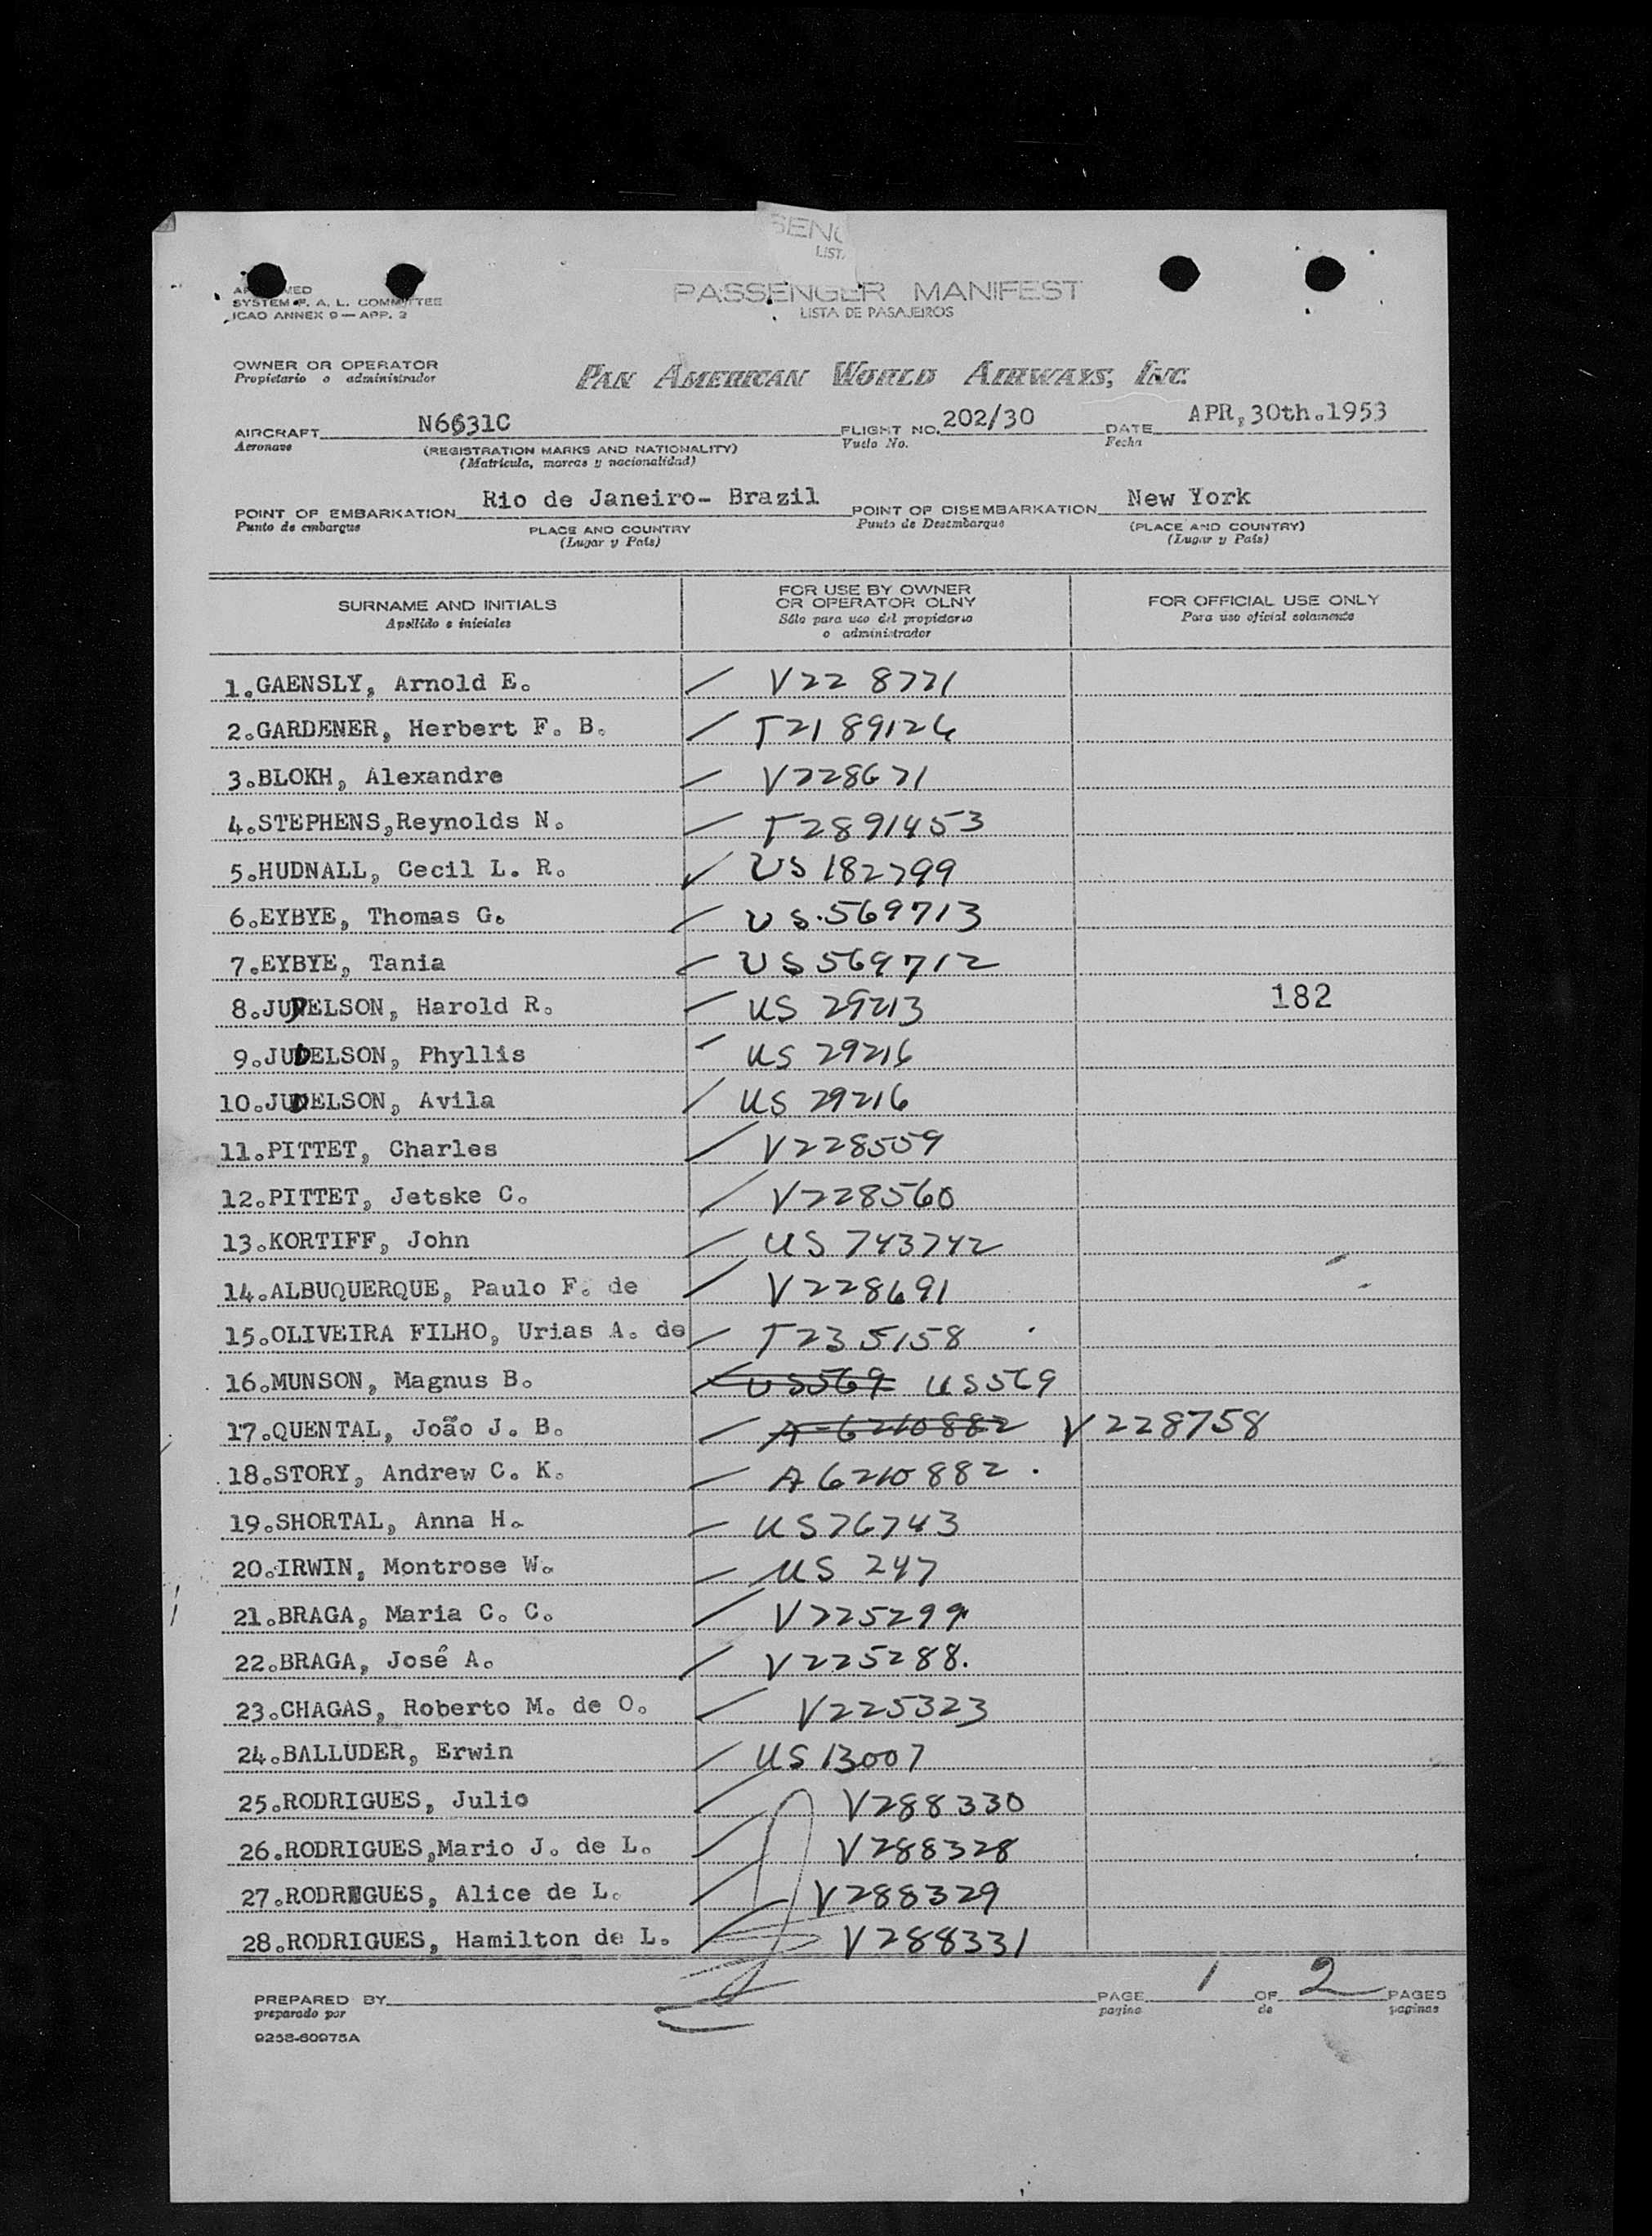 SENG
LIST.
SYSTEM F. A. L. COMMITTEE
ICAO ANNEX 9 — APP. 2
PASSENGER MANIFEST
LISTA DE PASAJEROS
OWNER OR OPERATOR
Propietario o administrador
PAN AMERICAN WORLD AIRWAYS, INC.
AIRCRAFT N6631C FLIGHT NO. 202/30 DATE APR, 30th.1953
Aeronave (REGISTRATION MARKS AND NATIONALITY) Vuelo No. Fecha
(Matricula, marcas y nacionalidad)
POINT OF EMBARKATION Rio de Janeiro- Brazil POINT OF DISEMBARKATION New York
Punto de embarque PLACE AND COUNTRY Punto de Desembarque (PLACE AND COUNTRY)
(Lugar y País) (Lugar y País)
SURNAME AND INITIALS FOR USE BY OWNER OR OPERATOR OLNY FOR OFFICIAL USE ONLY
Apellido e iniciales Sólo para uso del propietario o administrador Para uso oficial solamente
1.GAENSLY, Arnold E. V22 8721
2.GARDENER, Herbert F. B. T2189126
3.BLOKH, Alexandre V228671
4.STEPHENS,Reynolds N. T2891453
5.HUDNALL, Cecil L. R. US 182799
6.EYBYE, Thomas G. US.569713
7.EYBYE, Tania US569712
8.JUDELSON, Harold R. US 29213 182
9.JUDELSON, Phyllis US 29216
10.JUDELSON, Avila US 29216
11.PITTET, Charles V228559
12.PITTET, Jetske C. V228560
13.KORTIFF, John US 743742
14.ALBUQUERQUE, Paulo F. de V228691
15.OLIVEIRA FILHO, Urias A. de T235158
16.MUNSON, Magnus B. US569 US569
17.QUENTAL, João J. B. A-6210882 V228758
18.STORY, Andrew C. K. A6210882.
19.SHORTAL, Anna H. US76743
20.IRWIN, Montrose W. US 247
21.BRAGA, Maria C. C. V225299
22.BRAGA, José A. V225288.
23.CHAGAS, Roberto M. de O. V225323
24.BALLUDER, Erwin US13007
25.RODRIGUES, Julio V288330
26.RODRIGUES,Mario J. de L. V288328
27.RODRIGUES, Alice de L. V288329
28.RODRIGUES, Hamilton de L. V288331
PREPARED BY PAGE 1 OF 2 PAGES
preparado por pagina de paginas
9258-60975A